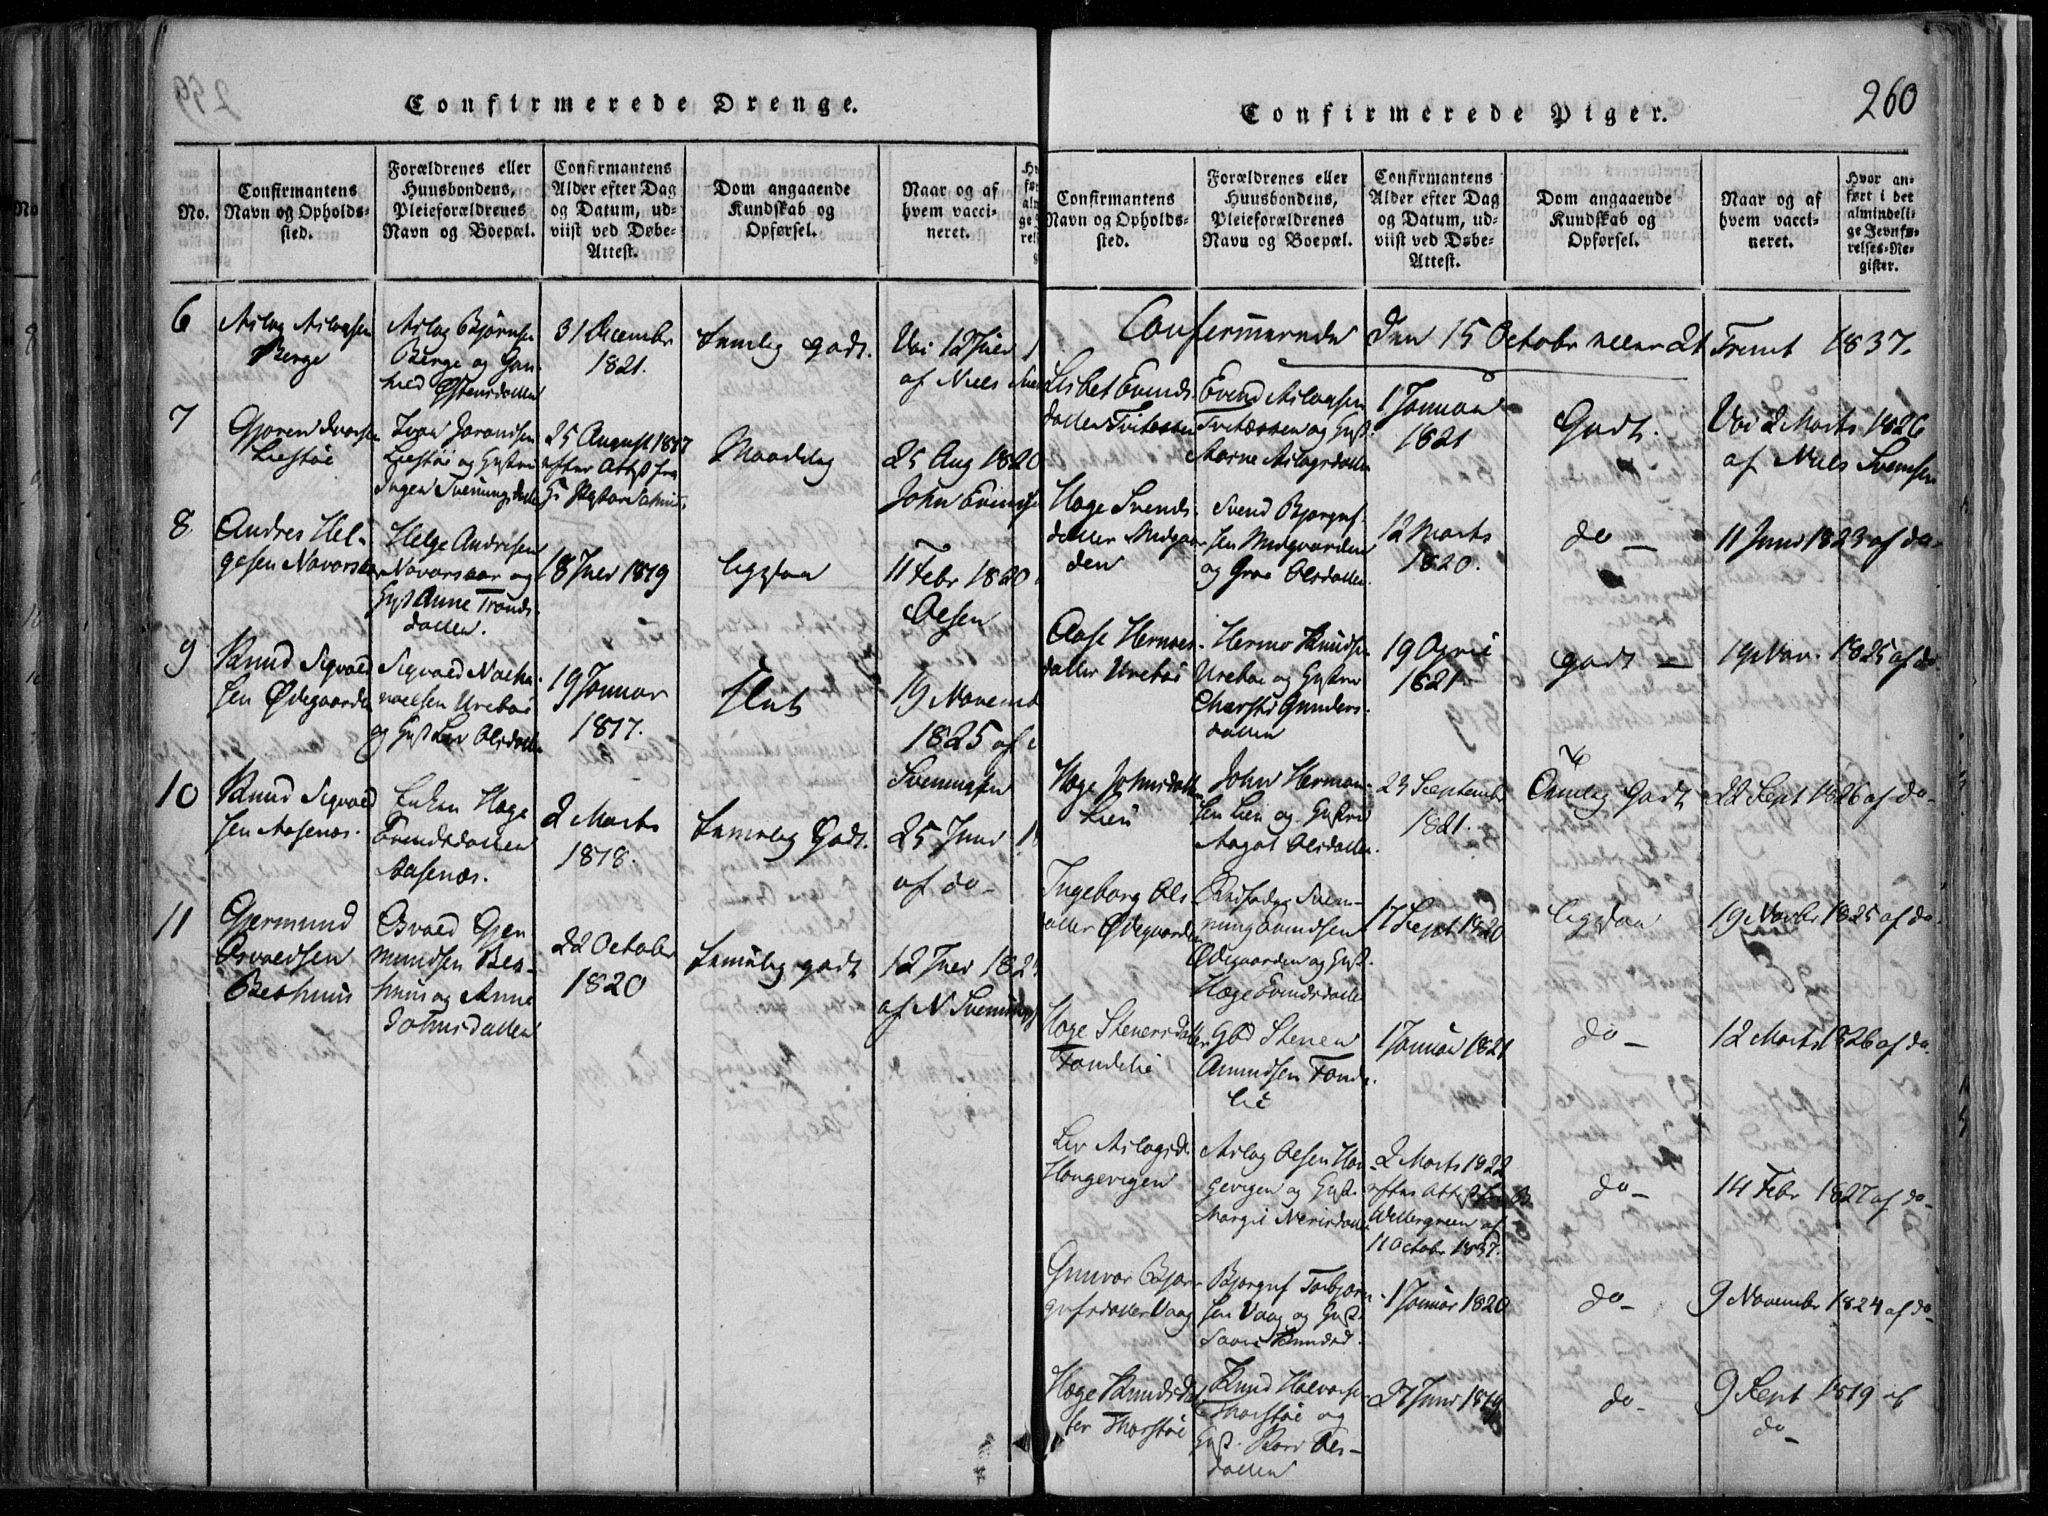 Confirmerede Drenge.
No.
Confirmantens
Navn og Opholds-
sted.
Forældrenes eller
Huusbondens,
Pleieforældrenes
Navn og Boepæl.
Confirmantens
Alder efter Dag
og Datum, ud-
viist ved Døbe-
Attest.
Dom angaaende
Kundskab og
Opførsel.
Naar og af
hvem vacci-
neret.
6
Aslag Aslagsen
Berge
Aslag Bjørnsen
Berge og Gun-
hild Østensdatter
31 December
1821.
temlig godt.
Vói 12 Juli 1
af Niels
7
Gjeren Ivarsen
Liestøe
Ivar Jorandsen
Liestøe og Hustru
Ingen Svenungsdatter
25 August 1817
efter Attest fra
Maadelig
25 Aug 1820
John
8
Andres Hel-
gesen Navarsaar
Helge Andresen
Navarsaar og
Hust Anne Tronds-
datter.
18 Juli 1819
ligesaa
11 Febr 1820
Olsen
9
Knud Sigvald
sen Ødegaarden
Sigvald Natha-
naelsen Urebøe
og Hust Liv Olsdatter
19 Januar
1817.
Slet
19 Novemb
1825 af
Svenungsen
10
Knud Sigvald
sen Aasenæs.
Enken Hæge
Evendsdatter
Aasenæs.
2 Marts
1818.
temelig Godt.
25 Juni 18
af do-
11
Gjermund
Osvaldsen
Beshuus
Osvald Gjer
mundsen Bes-
huus og Anne
Johnsdatter
22 October
1820
temelig godt
12 Juli 182
af N Svenungs
Confirmerede Piger.
260
Confirmantens
Navn og Opholds-
sted.
Forældrenes eller
Huusbondens,
Pleieforældrenes
Navn og Boepæl.
Confirmantens
Alder efter Dag
og Datum, ud-
viist ved Døbe-
Attest.
Dom angaaende
Kundskab og
Opførsel.
Naar og af
hvem vacci-
neret.
Hvor an-
ført i det
almindeli-
ge Jevnfø-
relses-Re-
gister.
Confermerede den 15 Octobr eller 21 Trenit 1837.
Lisbet Evends-
datter Tvitæssen
Evend Aslagsen
Tvitæssen og Hust.
Aarne Aslagsdatter
1 Januar
1821
Godt.
Vói 2 Marts 1826
af Niels Svensen
Hæge Svends-
datter Midgaar
den
Svend Bjørguf-
sen Midgaarden
og Groe Olsdatter
12 Marts
1820.
do -
11 Juni 1823 af do-
Aase Hermos-
datter Urebøe
Hermo Knudse
Urebøe og Hustru
Gunders-
datter
19 April
1821
godt -
19 Nov. 1825 af do
Hæge Johnsdatter
Lien
John Herman-
sen Lien og Hustru
Aagot Olsdatter.
23 September
1821.
Godt
22 Sept 1826 af do-
Ingeborg Ols
datter Ødegaarden
Sven-
nung Evendsen
Ødegaarden og Hust.
Hæge Evendsdatter
17 Sept 1820
ligesaa
19 Novbr 1825 af do.
Hæge Stenersdatter
Fondelie
Gbd Stener
Amundsen Fonde
lie
1 Januar 1821
do -
12 Marts 1826 af do.
Liv Aslagsd.
Haugevigen
Aslag Olsen Hau
gevigen og Hust.
Margit Nerisdatter
2 Marts 1822
efter Attest fra
Wettergreen af
11 Octobr 1837.
do-
14 Febr 1827 af do-
Gunvor Bjør
gufsdatter Vaag
Bjørguf Torbjørn
sen Vaag og Hust
Knudsd.
1 Januar 1820
do-
9 Novembr 1824 af do
Hæge Knudsdat
ter Thorstøe
Knud Halvorsen
Thorstøe og
Hust. Kari Ols-
datter
27 Juni 1819
do-
9 Sept 1819 af
do-